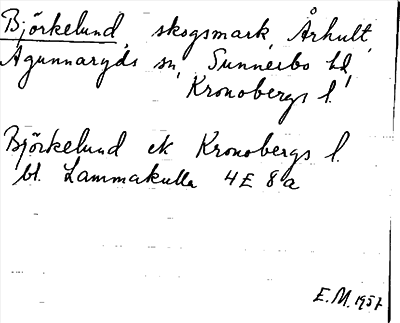 Björkelund, skogsmark, Århult,
Agunnaryds sn, Sunnerbo hd,
Kronobergs l.
Björkelund ek Kronobergs l.
bl. Lammakulla 4E 8a
E.M. 1957